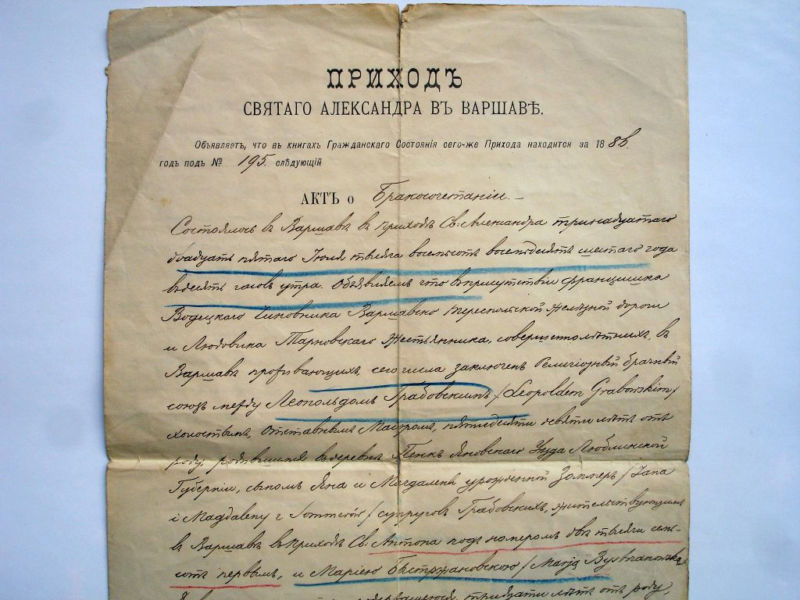 ПРИХОДЪ
СВЯТАГО АЛЕКСАНДРА ВЪ ВАРШАВѢ.
Объявляетъ, что въ книгахъ Гражданскаго Состоянія сего-же Прихода находится за 1886.
годъ подъ № 195. слѣдующій
АКТЪ о Бракосочетаніи.
Состоялось въ Варшавѣ въ приходѣ Св. Александра тринадцатаго
двадцать пятаго Іюля тысяча восемьсотъ восемьдесятъ шестаго года
въ десять часовъ утра. Объявляемъ что въ присутствіи Францишка
Водецкаго чиновника Варшавско Тереспольской желѣзной дороги
и Людовика Тарновскаго жестянника, совершеннолѣтнихъ, въ
Варшавѣ проживающихъ, сего числа заключенъ Религіозный брачный
союзъ между Леопольдомъ Грабовскимъ /Leopoldem Grabowskim/
холостымъ, отставнымъ Маіоромъ, пятидесяти девяти лѣтъ отъ
роду, родившимся въ деревнѣ Яновскаго Уѣзда Люблинской
Губерніи, сыномъ Яна и Магдалены урожденной /Jana
i Magdaleny z супруговъ Грабовскихъ, жительствующимъ
въ Варшавѣ въ приходѣ Св. Антона подъ номеромъ двѣ тысячи семь-
сотъ первымъ, и Маріею Быстржановскою /Marją Bystrzanowską
тридцати лѣтъ отъ роду,